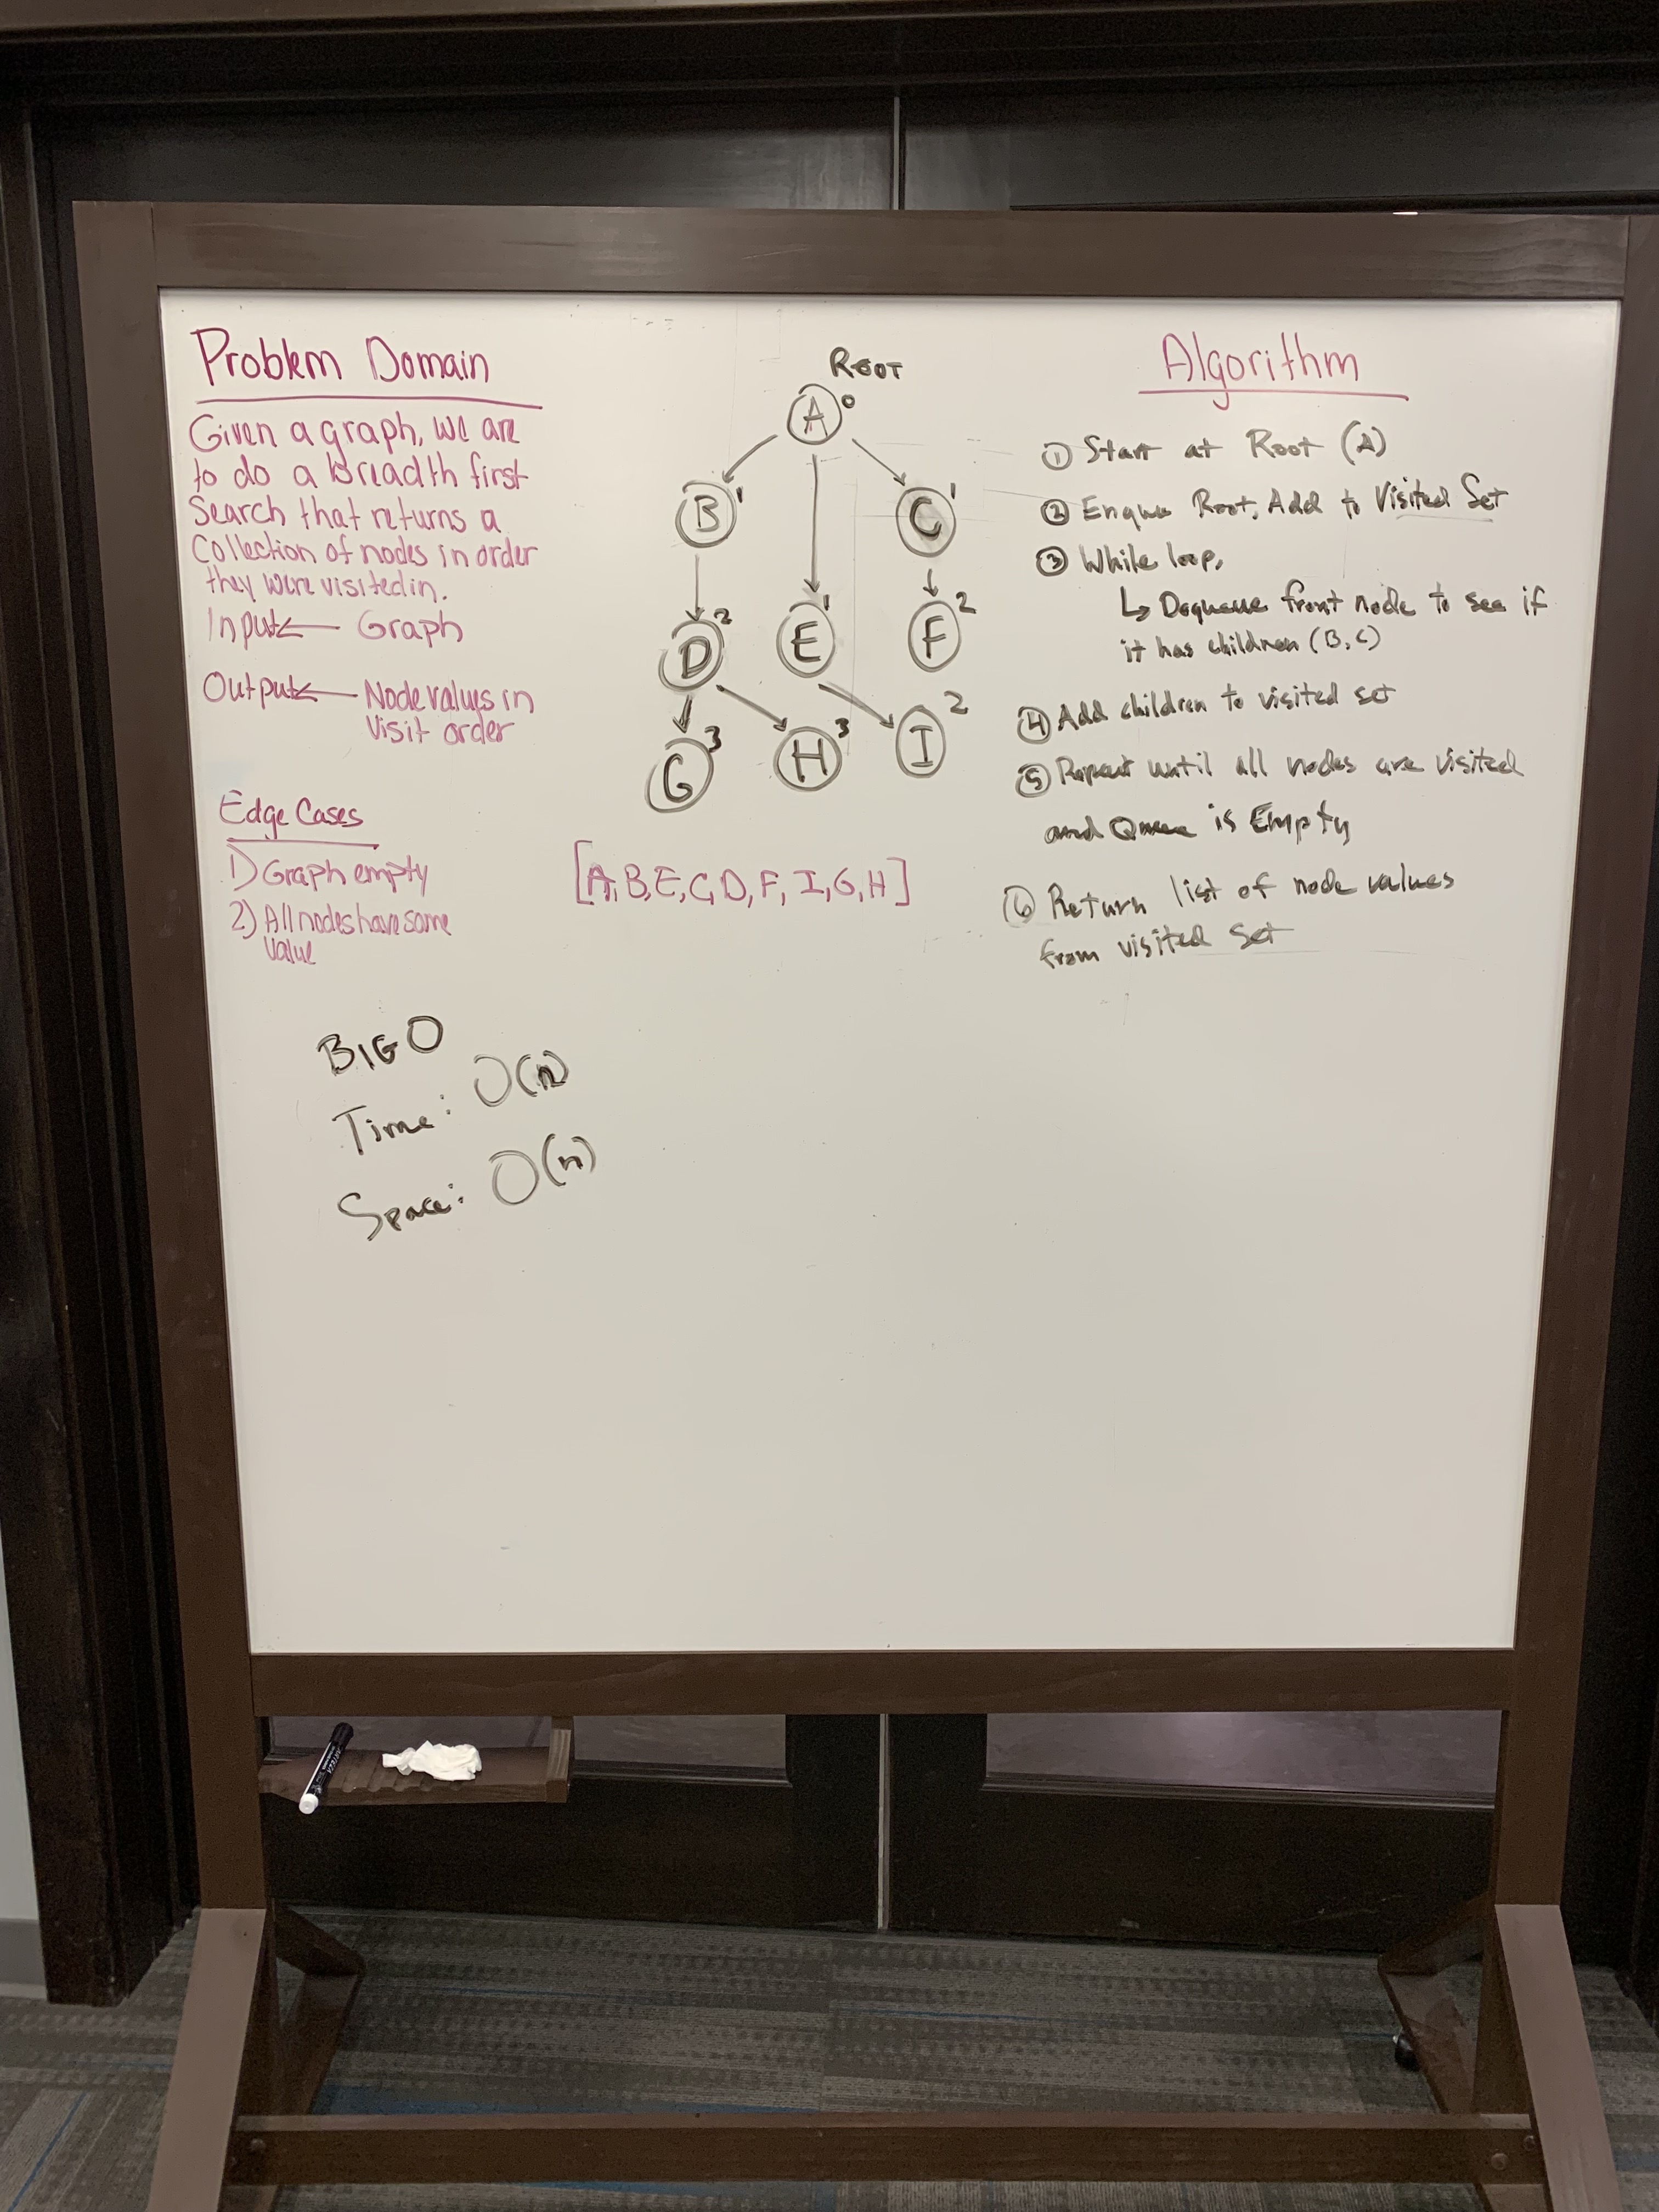 Problem Domain
Given a graph, we are
to do a breadth first
Search that returns a
Collection of nodes in order
they were visited in.
Input ← Graph
Output ← Node values in
Visit order
Edge Cases
1) Graph empty
2) All nodes have same
value
BIG O
Time: O(n)
Space: O(n)
ROOT
A 0
B 1
C 1
D 2
E 1
F 2
G 3
H 3
I 2
[A, B, E, C, D, F, I, G, H]
Algorithm
① Start at Root (A)
② Enque Root, Add to Visited Set
③ While loop,
↳ Dequeue front node to see if
it has children (B, C)
④ Add children to visited set
⑤ Repeat until all nodes are visited
and Queue is Empty
⑥ Return list of node values
from visited set